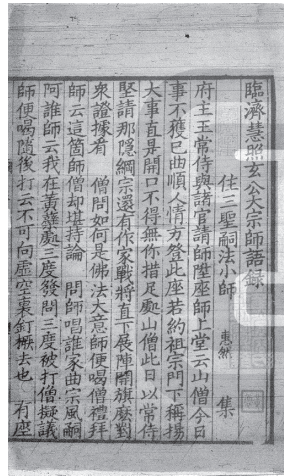 臨濟慧照玄公大宗師語録
住三聖嗣法小師 惠然 集
府主王常侍與諸官請師陞座師上堂云山僧今日
事不獲已曲順人情方登此座若約祖宗門下稱揚
大事直是開口不得無你措足處山僧此日以常侍
堅請那隱綱宗還有作家戰將直下展陣開旗麽對
衆證據看 僧問如何是佛法大意師便喝僧禮拜
師云這箇師僧却堪持論 問師唱誰家曲宗風嗣
阿誰師云我在黃蘗處三度發問三度被打僧擬議
師便喝隨後打云不可向虛空裏釘橛去也 有座